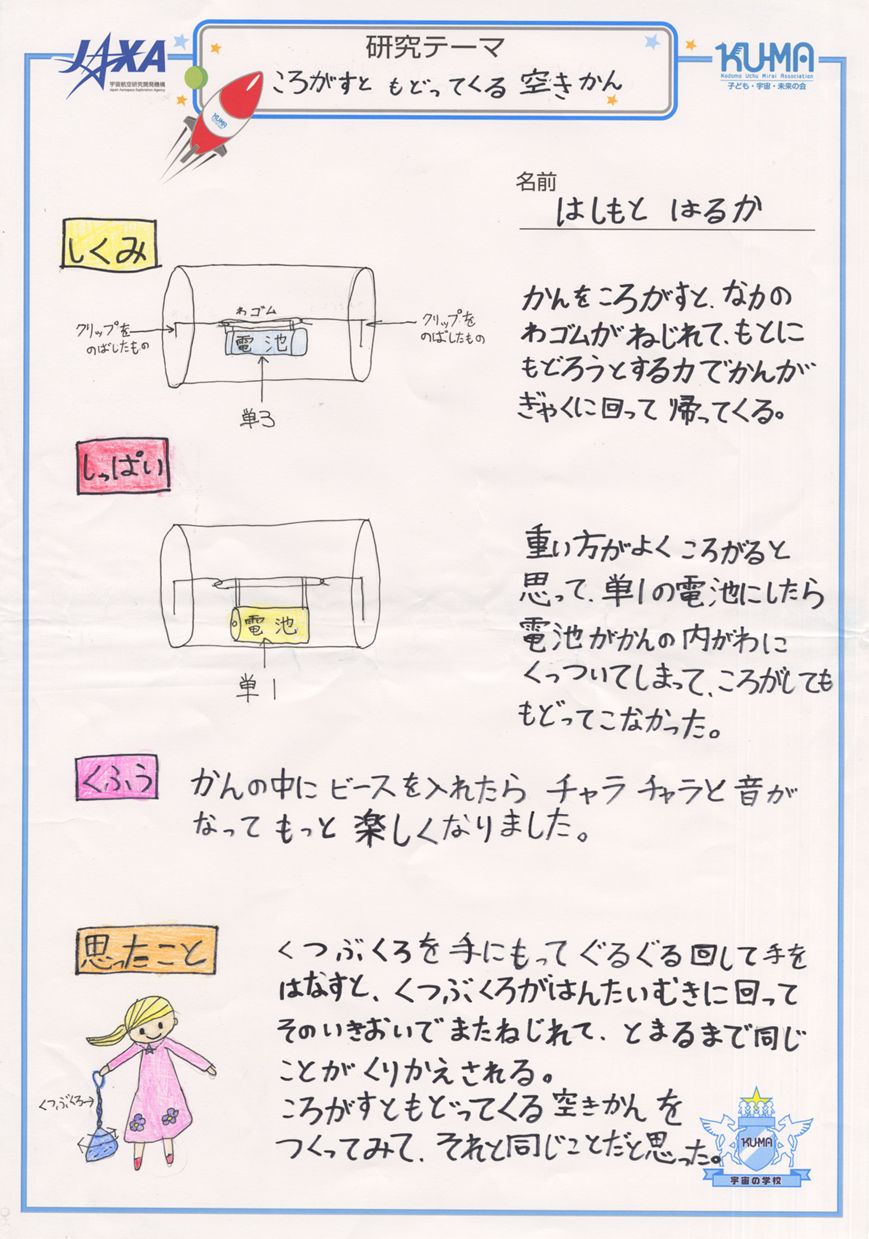 JAXA
宇宙航空研究開発機構
Japan Aerospace Exploration Agency
研究テーマ
ころがすと もどってくる 空きかん
KU-MA
Kodomo Uchu Mirai Association
子ども・宇宙・未来の会
KU-MA
名前
はしもと はるか
しくみ
わゴム
クリップを
のばしたもの
電池
クリップを
のばしたもの
単3
かんをころがすと、なかの
わゴムがねじれて、もとに
もどろうとする力でかんが
ぎゃくに回って帰ってくる。
しっぱい
電池
単1
重い方がよくころがると
思って、単1の電池にしたら
電池がかんの内がわに
くっついてしまって、ころがしても
もどってこなかった。
くふう
かんの中にビースを入れたら チャラチャラと音が
なってもっと楽しくなりました。
思ったこと
くつぶくろ
くつぶくろを手にもってぐるぐる回して手を
はなすと、くつぶくろがはんたいむきに回って
そのいきおいでまたねじれて、とまるまで同じ
ことがくりかえされる。
ころがすともどってくる空きかんを
つくってみて、それと同じことだと思った。
KU-MA
宇宙の学校